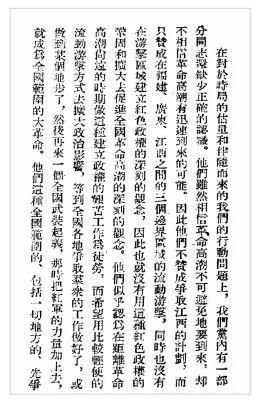 在對於時局的估量和伴隨而來的我們的行動問題上,我們黨內有一部
分同志還缺少正確的認識。他們雖然相信革命高潮不可避免地要到來,却
不相信革命高潮有迅速到來的可能。因此他們不贊成爭取江西的計劃,而
只贊成在福建、廣東、江西之間的三個邊界區域的流動游擊,同時也沒有
在游擊區域建立紅色政權的深刻的觀念,因此也就沒有用這種紅色政權的
鞏固和擴大去促進全國革命高潮的深刻的觀念。他們似乎認爲在距離革命
高潮尚遠的時期做這種建立政權的艱苦工作爲徒勞,而希望用比較輕便的
流動游擊方式去擴大政治影響,等到全國各地爭取羣衆的工作做好了,或
做到某個地步了,然後再來一個全國武裝起義,那時把紅軍的力量加上去,
就成爲全國範圍的大革命。他們這種全國範圍的、包括一切地方的、先爭